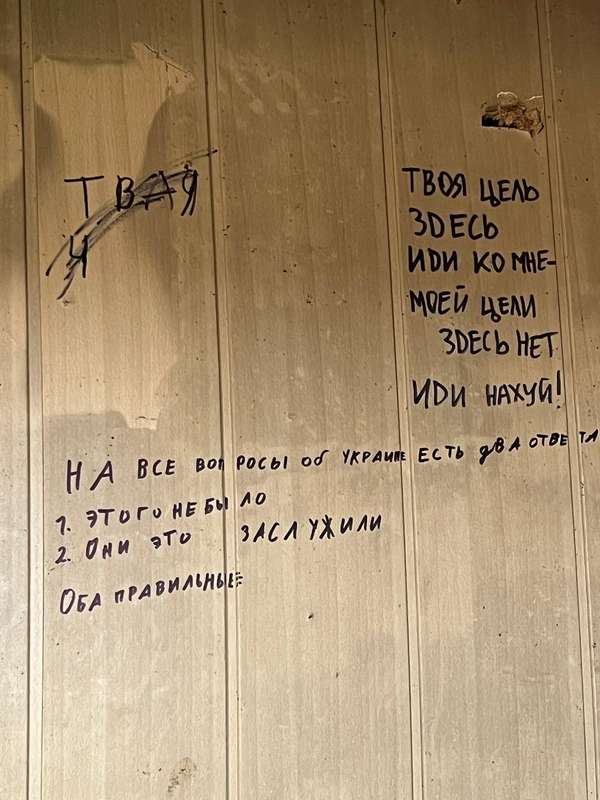 ТВАЯ
Ц
ТВОЯ ЦЕЛЬ
ЗДЕСЬ
ИДИ КО МНЕ-
МОЕЙ ЦЕЛИ
ЗДЕСЬ НЕТ
ИДИ НАХУЙ!
НА ВСЕ ВОПРОСЫ ОБ УКРАИНЕ ЕСТЬ ДВА ОТВЕТА
1. ЭТОГО НЕ БЫЛО
2. ОНИ ЭТО ЗАСЛУЖИЛИ
ОБА ПРАВИЛЬНЫЕ